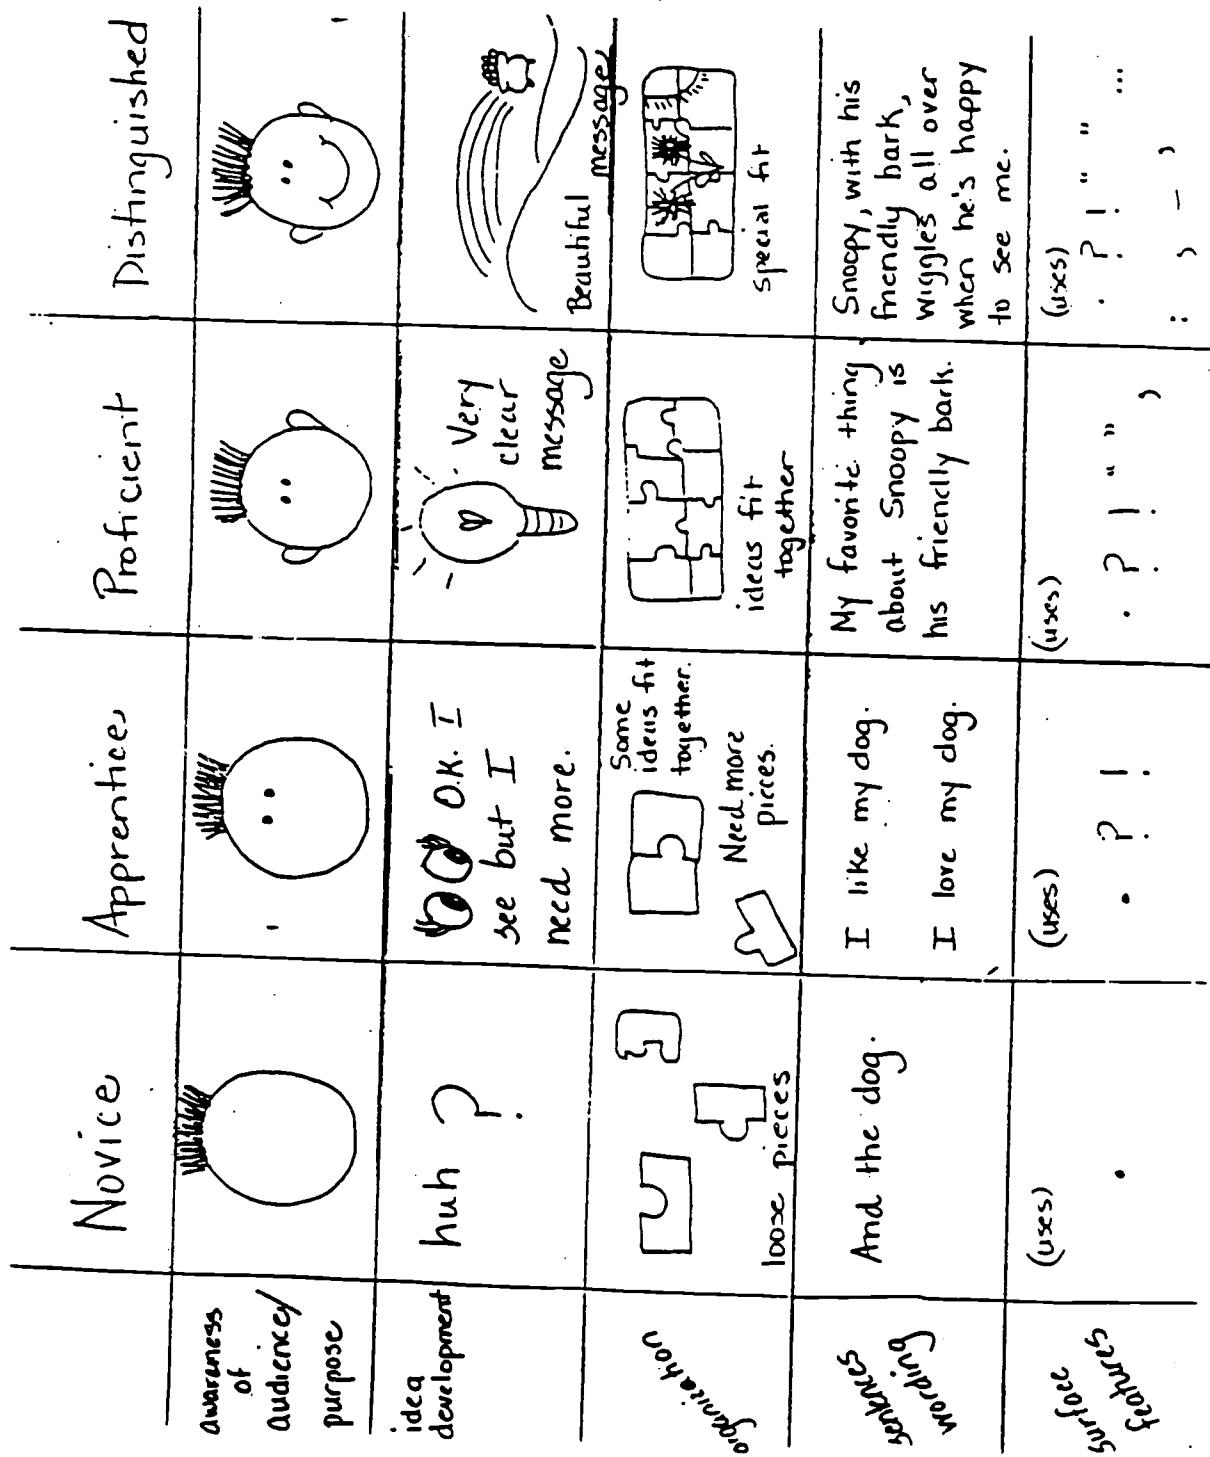 Novice
Apprentice
Proficient
Distinguished
awareness
of
audience/
purpose
idea
development
huh ?
O.K. I
see but I
need more.
Very
clear
message
Beautiful
message
organization
loose pieces
Some
ideas fit
together.
Need more
pieces.
ideas fit
together
special fit
sentences
wording
And the dog.
I like my dog.
I love my dog.
My favorite thing
about Snoopy is
his friendly bark.
Snoopy, with his
friendly bark,
wiggles all over
when he's happy
to see me.
surface
features
(uses)
.
(uses)
. ? !
(uses)
. ? ! " " ,
(uses)
. ? ! " " ...
: , – ,